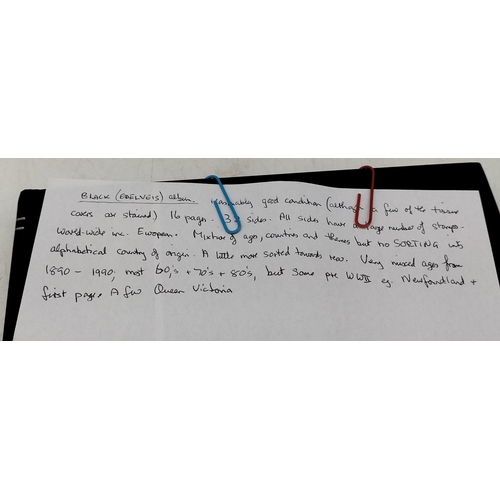 BLACK (EDELVEIS) album. reasonably good condition (although a few of the tissue
covers are stained) 16 pages. 32 sides. All sides have large number of stamps.
World-wide inc. European. Mixture of ages, countries and themes but no SORTING into
alphabetical country of origin. A little more sorted towards rear. Very mixed ages from
1890 - 1990, most 60's + 70's + 80's, but some pre WWII eg. Newfoundland +
first page. A few Queen Victoria